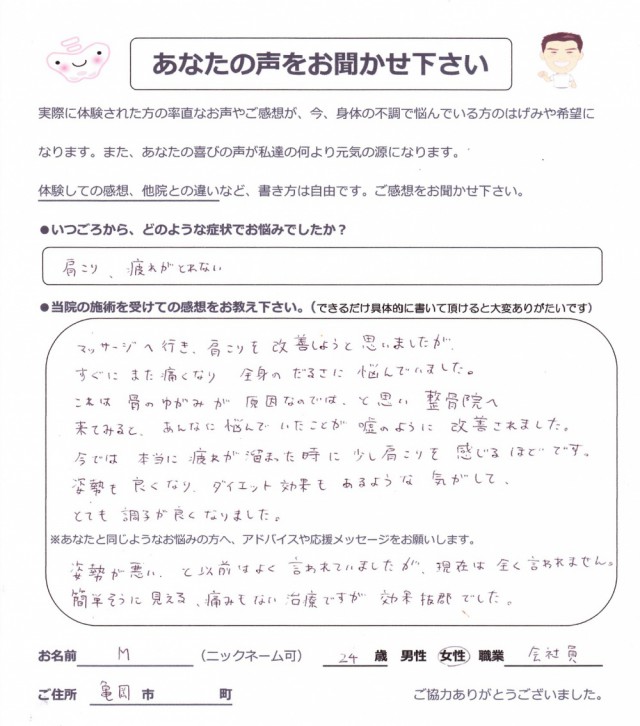 あなたの声をお聞かせ下さい
実際に体験された方の率直なお声やご感想が、今、身体の不調で悩んでいる方のはげみや希望に
なります。また、あなたの喜びの声が私達の何より元気の源になります。
体験しての感想、他院との違いなど、書き方は自由です。ご感想をお聞かせ下さい。
●いつごろから、どのような症状でお悩みでしたか？
肩こり、疲れがとれない
●当院の施術を受けての感想をお教え下さい。（できるだけ具体的に書いて頂けると大変ありがたいです）
マッサージへ行き、肩こりを改善しようと思いましたが、
すぐにまた痛くなり 全身のだるさに悩んでいました。
これは骨のゆがみが原因なのでは、と思い 整骨院へ
来てみると、あんなに悩んでいたことが嘘のように改善されました。
今では本当に疲れが溜まった時に少し肩こりを感じるほどです。
姿勢も良くなり、ダイエット効果もあるような気がして、
とても調子が良くなりました。
※あなたと同じようなお悩みの方へ、アドバイスや応援メッセージをお願いします。
姿勢が悪い、と以前はよく言われていましたが、現在は全く言われません。
簡単そうに見える、痛みもない治療ですが効果抜群でした。
お名前 M （ニックネーム可） 24 歳 男性 女性 職業 会社員
ご住所 亀岡 市 町 ご協力ありがとうございました。